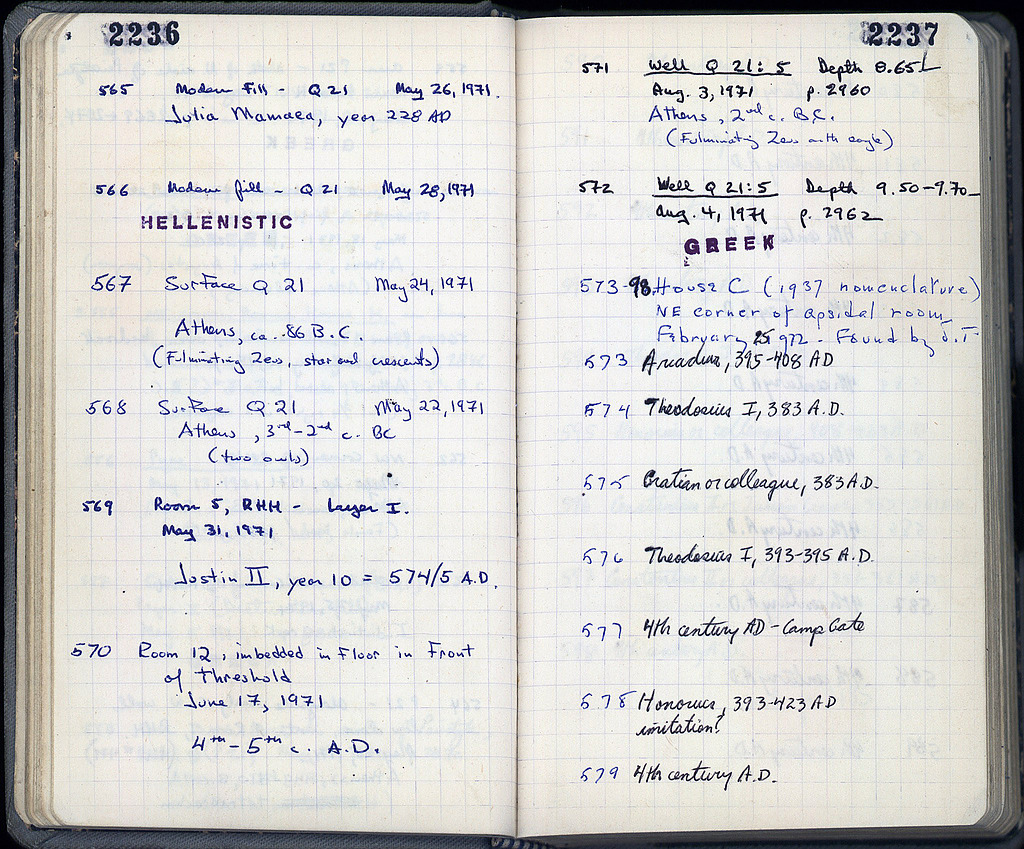 2236
565 Modern Fill - Q 21 May 26, 1971.
Julia Mamaea, year 228 AD
566 Modern fill - Q 21 May 28, 1971
HELLENISTIC
567 Surface Q 21 May 24, 1971
Athens, ca. 86 B.C.
(Fulminating Zeus, star and crescents)
568 Surface Q 21 May 22, 1971
Athens, 3rd-2nd c. BC
(two owls)
569 Room 5, RHH - Layer I.
May 31, 1971
Justin II, year 10 = 574/5 A.D.
570 Room 12, imbedded in Floor in Front
of threshold
June 17, 1971
4th-5th c. A.D.
2237
571 Well Q 21:5 Depth 8.65
Aug. 3, 1971 p. 2960
Athens, 2nd c. B.C.
(Fulminating Zeus with eagle)
572 Well Q 21:5 Depth 9.50-9.70
Aug. 4, 1971 p. 2962
GREEK
573-98 House C (1937 nomenclature)
NE corner of apsidal room
February 1972 - Found by J.T
573 Arcadius, 395-408 AD
574 Theodosius I, 383 A.D.
575 Gratian or colleague, 383 A.D.
576 Theodosius I, 393-395 A.D.
577 4th century AD - Camp Gate
578 Honorius, 393-423 AD
imitation?
579 4th century A.D.